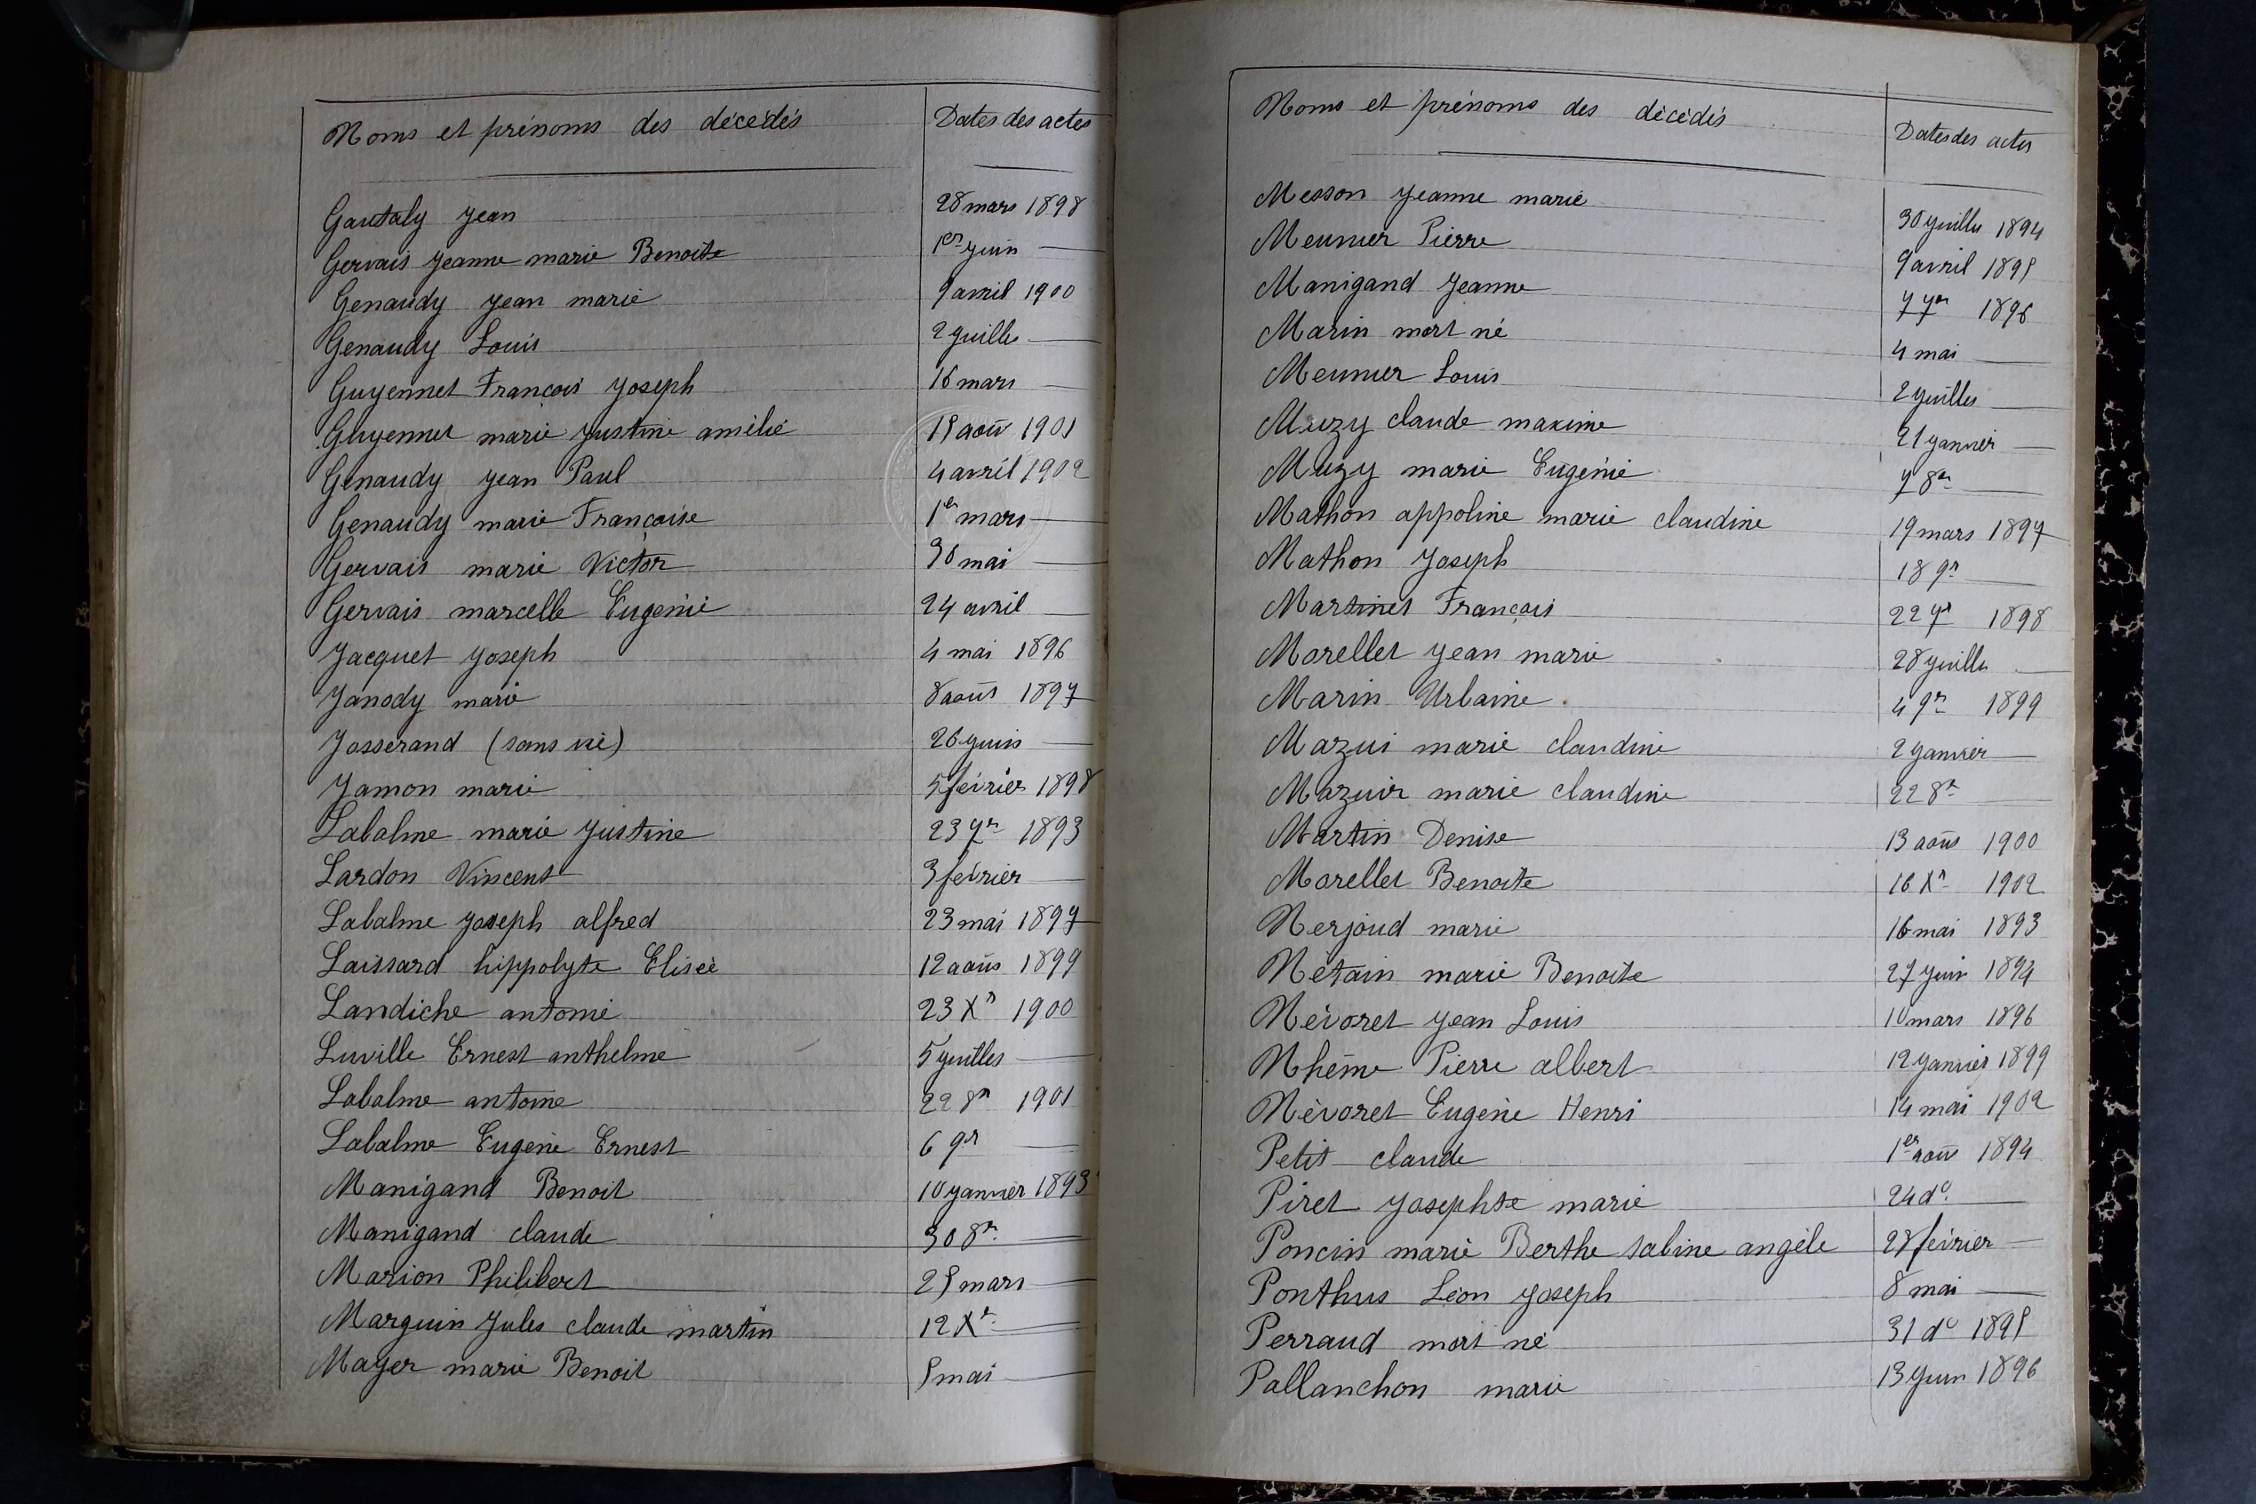 Noms et prénoms des décédés Dates des actes
Gautaly Jean 28 mars 1898
Gervais Jeanne marie Benoite 1er Juin —
Genaudy Jean marie 9 avril 1900
Genaudy Louis 2 Juillet —
Guyennet François Joseph 16 mars —
Guyennet marie Justine amélie 15 août 1901
Genaudy Jean Paul 4 avril 1902
Genaudy marie Françoise 1er mars —
Gervais marie Victor 30 mai —
Gervais marcelle Eugénie 24 avril —
Jacquet Joseph 4 mai 1896
Janody marie 8 août 1897
Josserand (sans vie) 26 Juin —
Jamon marie 5 février 1898
Labalme marie Justine 23 7re 1893
Lardon Vincent 3 février —
Labalme Joseph alfred 23 mai 1897
Laissard hippolyte Elisée 12 août 1899
Landiche antonie 23 Xre 1900
Luville Ernest anthelme 5 Juillet —
Labalme antoine 22 8re 1901
Labalme Eugène Ernest 6 9re —
Manigand Benoit 10 Janvier 1893
Manigand claude 30 8re —
Marion Philibert 25 mars —
Marguin Jules claude martin 12 Xre —
Mayer marie Benoit 5 mai —
Noms et prénoms des décédés Dates des actes
Messon Jeanne marie 30 Juillet 1894
Meunier Pierre 9 avril 1895
Manigand Jeanne 7 7re 1896
Marin mort né 4 mai —
Meunier Louis 2 Juillet —
Muzy claude maxime 21 Janvier —
Muzy marie Eugénie 7 8re —
Mathon appoline marie claudine 19 mars 1897
Mathon Joseph 18 9re —
Martinet François 22 7re 1898
Morellet Jean marie 28 Juillet —
Marin Urbaine 4 9re 1899
Mazui marie claudine 2 Janvier —
Mazuir marie claudine 22 8re —
Martin Denise 13 août 1900
Morellet Benoite 16 Xre 1902
Nerjoud marie 16 mai 1893
Nétain marie Benoite 27 Juin 1894
Névoret Jean Louis 10 mars 1896
Nhême Pierre albert 12 Janvier 1899
Névoret Eugène Henri 14 mai 1902
Petit claude 1er août 1894
Piret Josephte marie 24 do —
Poncin marie Berthe Sabine angèle 28 février —
Ponthus Léon Joseph 8 mai —
Perraud mort né 31 do 1895
Pallanchon marie 13 Juin 1896